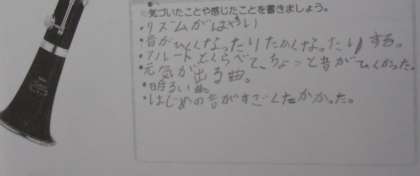 ○気づいたことや感じたことを書きましょう。
・リズムがはやい
・音がひくくなったりたかくなったりする。
・フルートとくらべて、ちょっと音がひくかった。
・元気が出る曲。
・明るい曲。
・はじめの音がすごくたかかった。